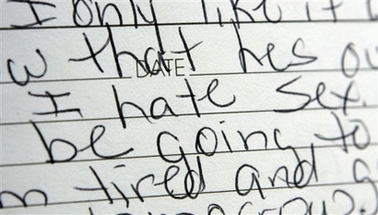 I only like it
w that hes ou
DATE
I hate sex.
be going to
m tired and a